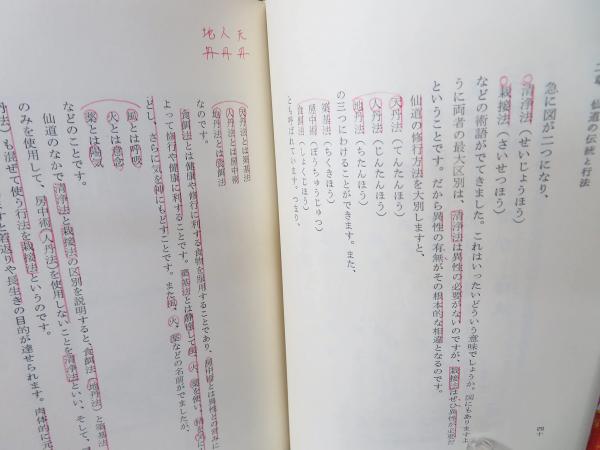 二章 仙道の伝統と行法
四十
急に図が二つになり、
清浄法(せいじょうほう)
栽接法(さいせつほう)
などの術語がでてきました。これはいったいどういう意味でしょうか。図にもありますよ
うに両者の最大区別は、清浄法は異性の必要がないのですが、栽接法はぜひ異性が必要だ
ということです。だから異性の有無がその根本的な相違となるのです。
仙道の修行方法を大別しますと、
天丹法(てんたんほう)
人丹法(じんたんほう)
地丹法(ちたんほう)
の三つにわけることができます。また、
築基法(ちくきほう)
房中術(ぼうちゅうじゅつ)
食餌法(しょくじほう)
とも呼ばれています。つまり、
天人地
丹丹丹
天丹法とは築基法
人丹法とは房中術
地丹法とは食餌法
なのです。
食餌法とは健康や修行に利する食物を服用することであり、房中術とは異性との営みに
よって修行や健康に利することです。築基法とは静座して風、火、薬を使い、精を気に
とし、さらに気を神にもどすことです。また風、火、薬などの名前がでましたが、
風とは呼吸
火とは意念
薬とは陽気
などのことです。
仙道のなかで清浄法と栽接法の区別を説明すると、食餌法(地丹法)と築基
のみを使用して、房中術(人丹法)を使用しないことを清浄法といい、そして、
丹法)も混ぜて使う行法を栽接法というのです。
ますと若返りや長生きの目的が達せられます。肉体的に元